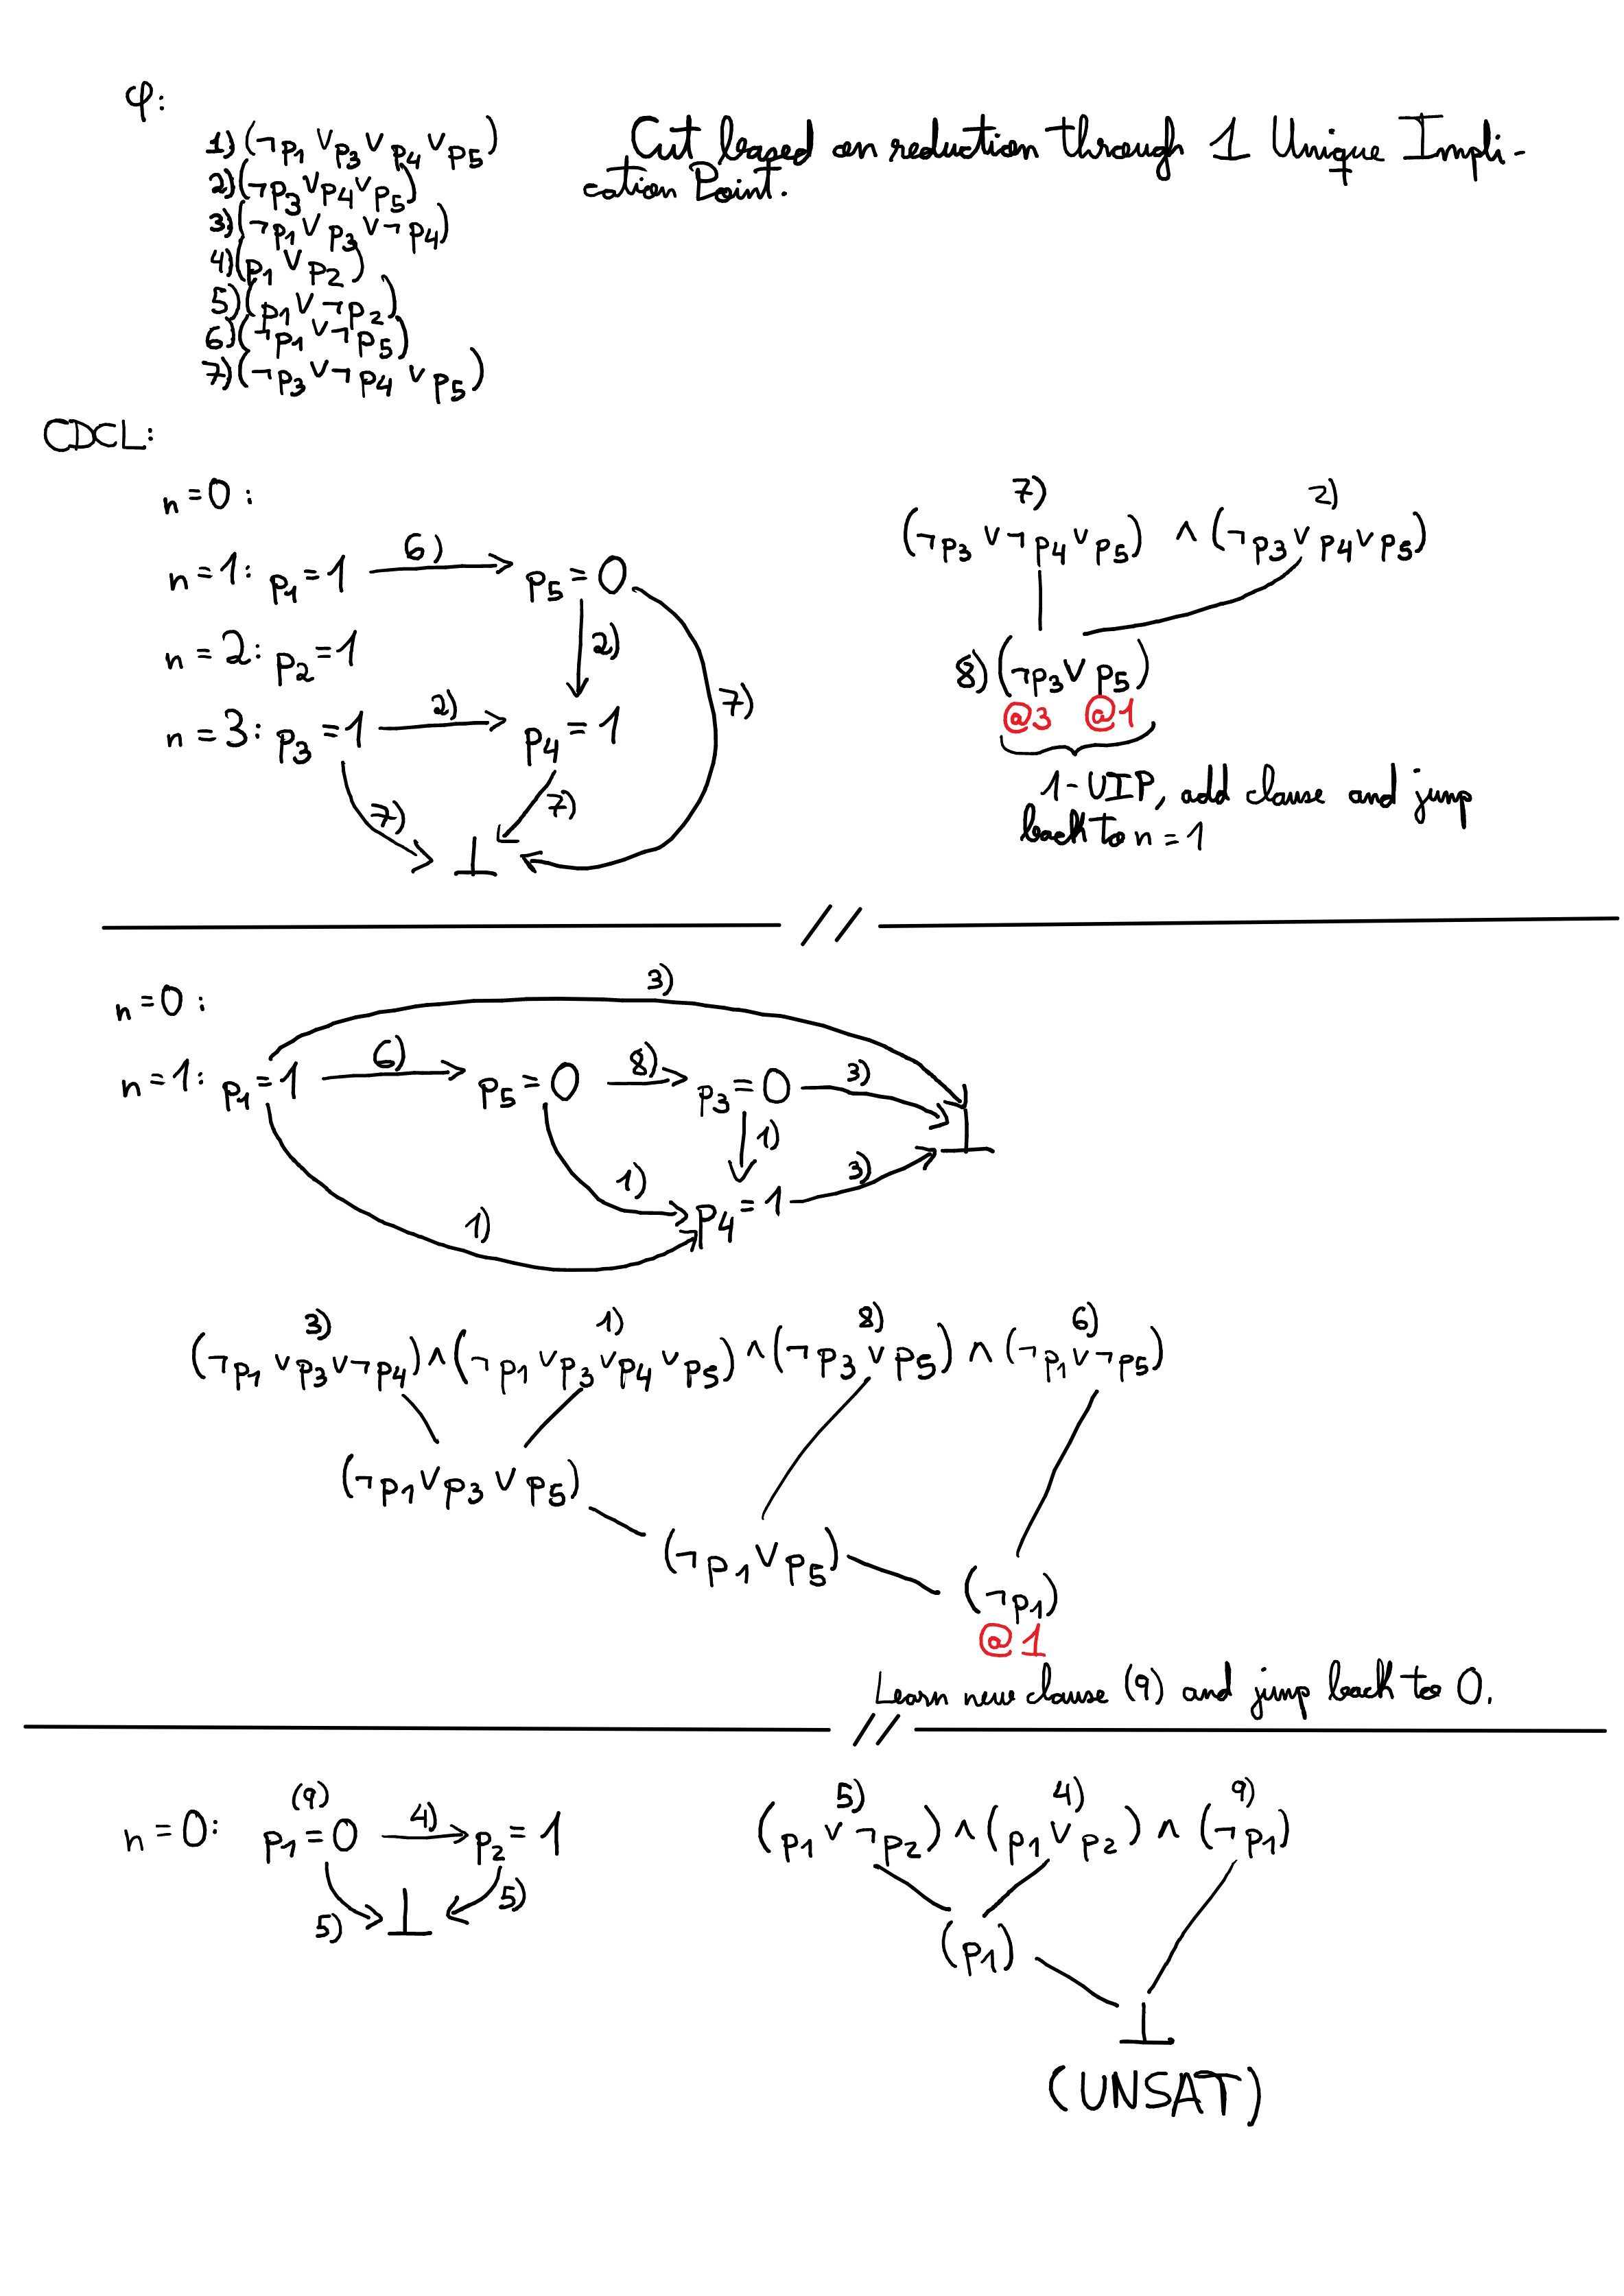 φ:
1) (¬p1 ∨ p3 ∨ p4 ∨ p5)
2) (¬p3 ∨ p4 ∨ p5)
3) (¬p1 ∨ p3 ∨ ¬p4)
4) (p1 ∨ p2)
5) (p1 ∨ ¬p2)
6) (¬p1 ∨ ¬p5)
7) (¬p3 ∨ ¬p4 ∨ p5)
Cut based on reduction through 1 Unique Impli-
cation Point.
CDCL:
n=0:
n=1: p1=1 6) p5=0
2)
n=2: p2=1
7)
n=3: p3=1 2) p4=1
7) 7)
⊥
7) 2)
(¬p3 ∨ ¬p4 ∨ p5) ∧ (¬p3 ∨ p4 ∨ p5)
8) (¬p3 ∨ p5)
@3 @1
1-UIP, add clause and jump
back to n=1
//
n=0:
3)
n=1: p1=1 6) p5=0 8) p3=0 3) ⊥
1)
1) 3)
1) p4=1
3) 1) 8) 6)
(¬p1 ∨ p3 ∨ ¬p4) ∧ (¬p1 ∨ p3 ∨ p4 ∨ p5) ∧ (¬p3 ∨ p5) ∧ (¬p1 ∨ ¬p5)
(¬p1 ∨ p3 ∨ p5)
(¬p1 ∨ p5)
(¬p1)
@1
Learn new clause (9) and jump back to 0.
//
(9)
n=0: p1=0 4) p2=1
5) ⊥ 5)
5) 4) 9)
(p1 ∨ ¬p2) ∧ (p1 ∨ p2) ∧ (¬p1)
(p1)
⊥
(UNSAT)